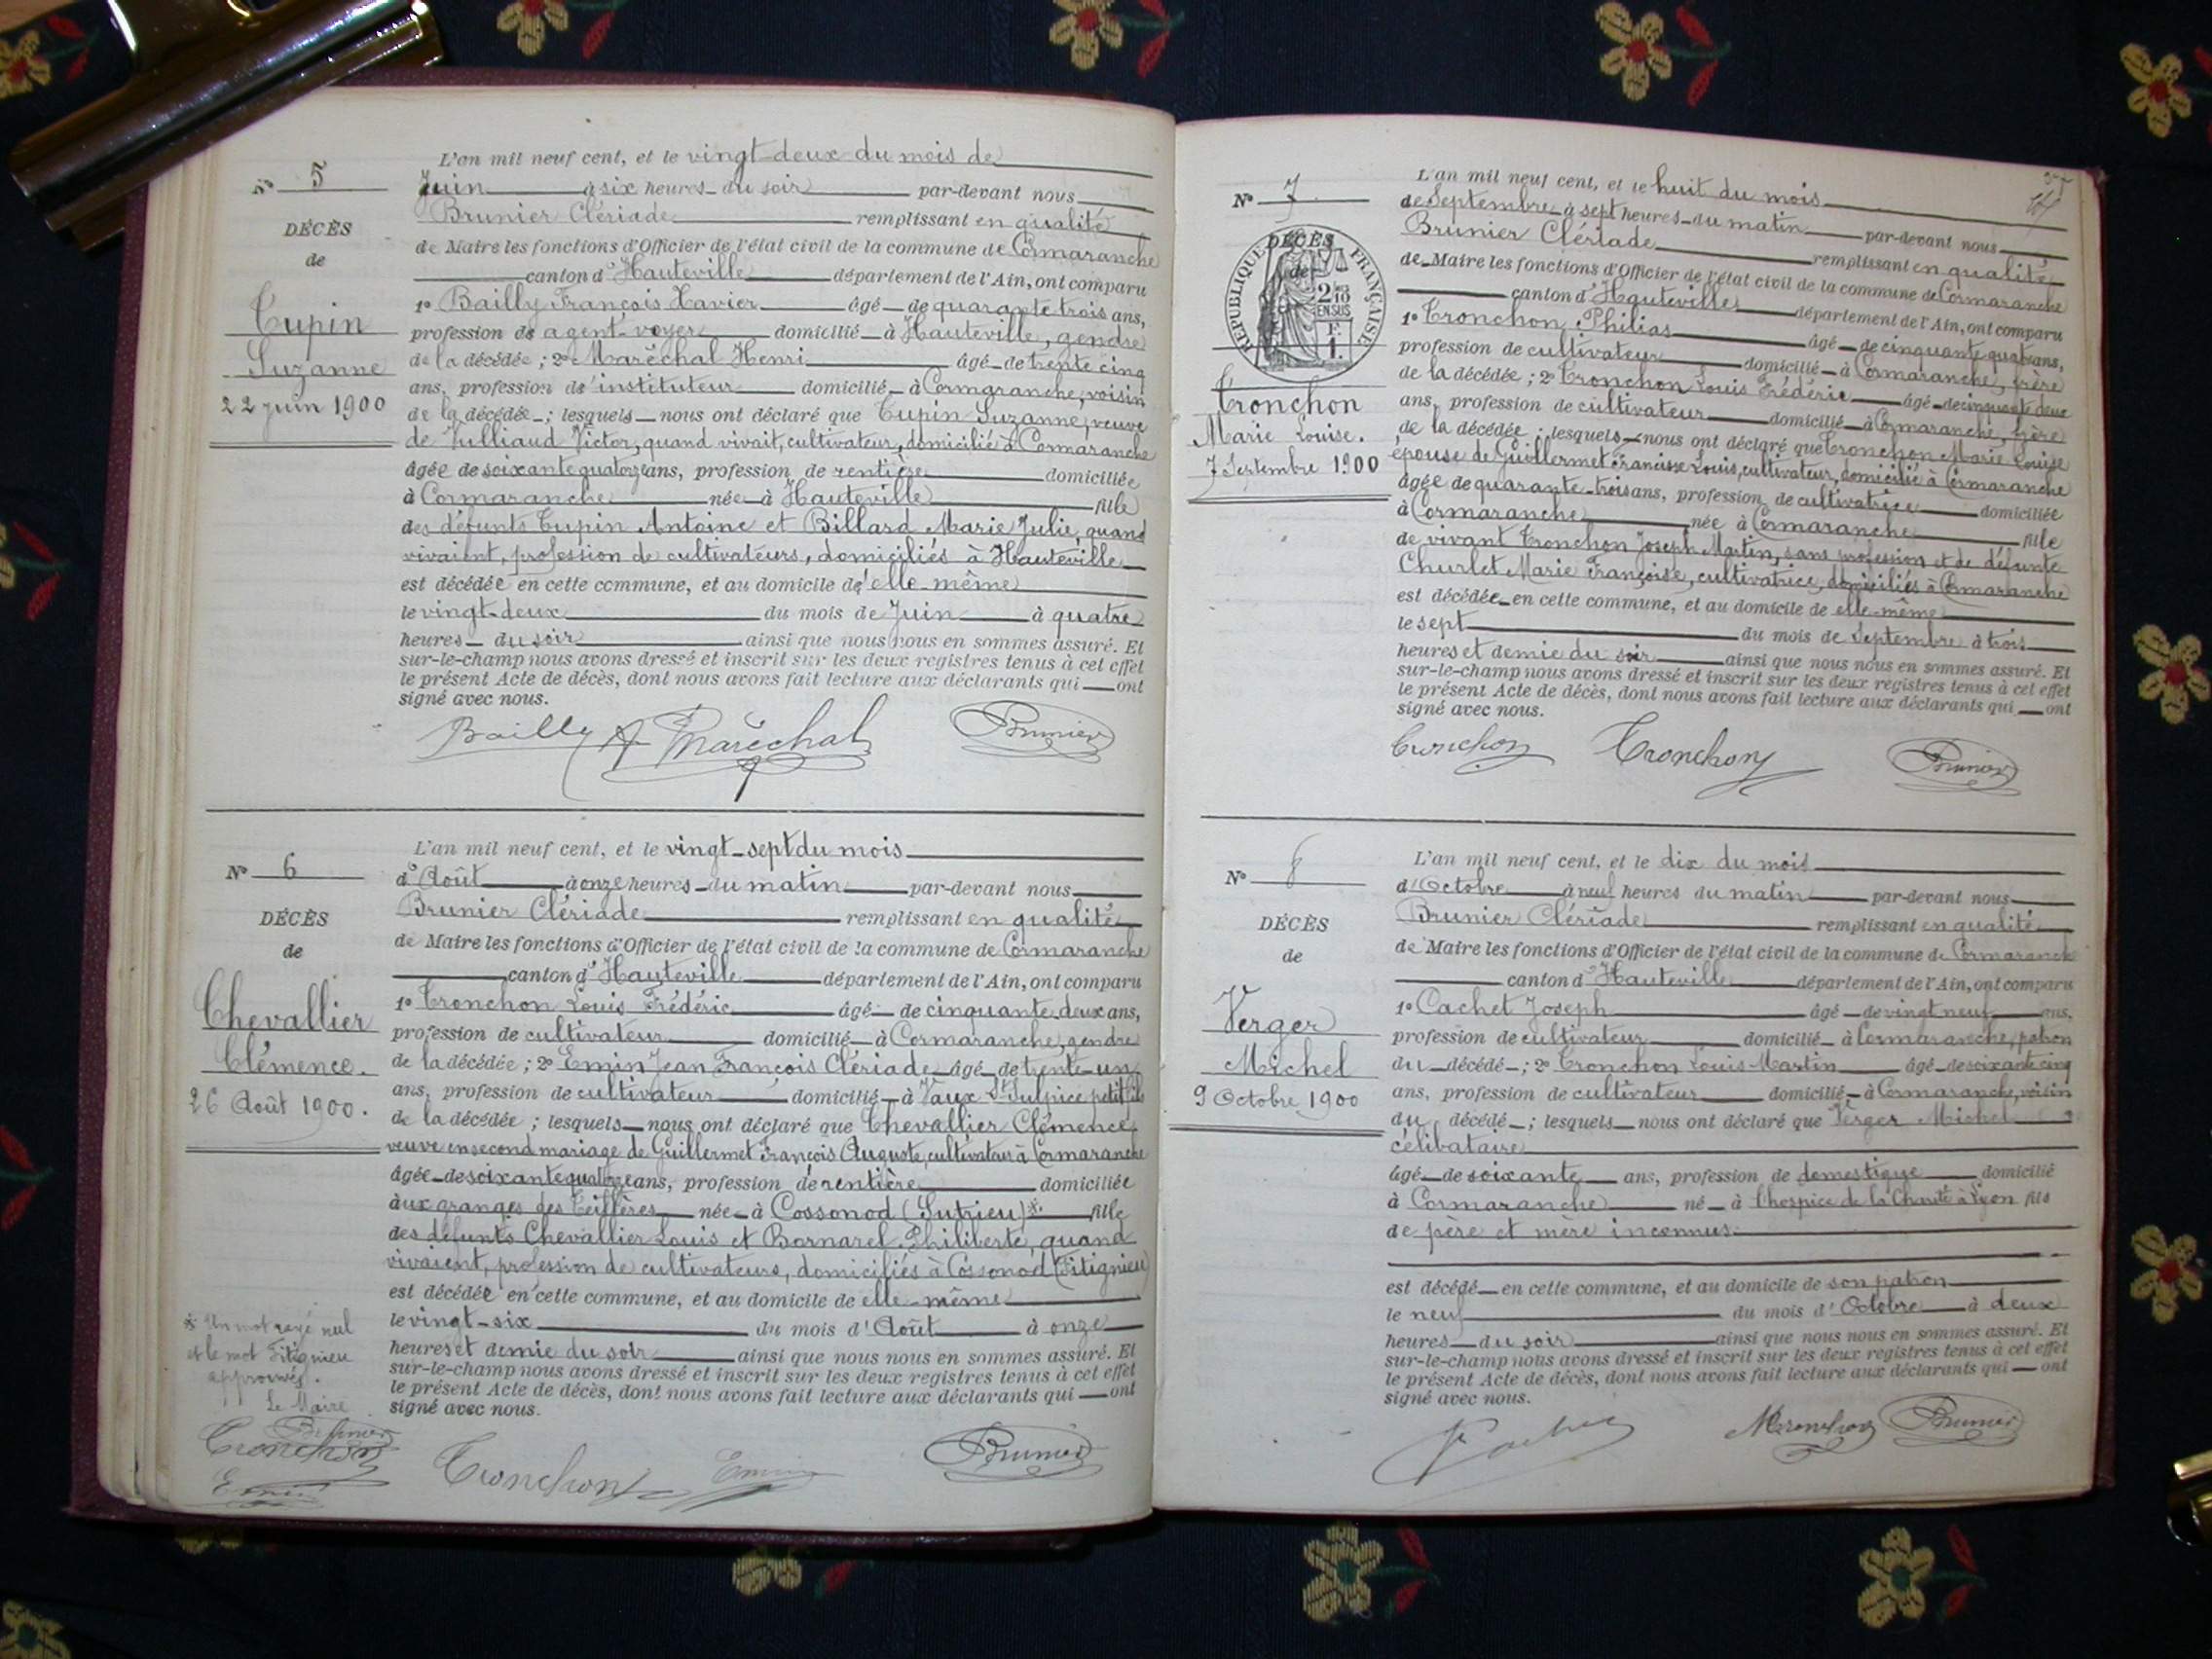 N° 5
DÉCÈS
de
Tupin
Suzanne
22 Juin 1900
L'an mil neuf cent, et le vingt-deux du mois de
Juin à six heures du soir par-devant nous
Brunier Clériade remplissant en qualité
de Maire les fonctions d'Officier de l'état civil de la commune de Cormaranche
canton d'Hauteville département de l'Ain, ont comparu
1° Bailly François Xavier âgé de quarante trois ans,
profession de agent-voyer domicilié à Hauteville, gendre
de la décédée ; 2° Maréchal Henri âgé de trente cinq
ans, profession d'instituteur domicilié à Cormaranche, voisin
de la décédée ; lesquels nous ont déclaré que Tupin Suzanne, veuve
de Julliaud Victor, quand vivait, cultivateur, domicilié à Cormaranche
âgée de soixante quatorze ans, profession de rentière domiciliée
à Cormaranche née à Hauteville fille
des défunts Tupin Antoine et Billard Marie Julie, quand
vivaient, profession de cultivateurs, domiciliés à Hauteville
est décédée en cette commune, et au domicile d'elle-même
le vingt-deux du mois de Juin à quatre
heures du soir ainsi que nous nous en sommes assuré. Et
sur-le-champ nous avons dressé et inscrit sur les deux registres tenus à cet effet
le présent Acte de décès, dont nous avons fait lecture aux déclarants qui ont
signé avec nous.
Bailly Maréchal Brunier
N° 6
DÉCÈS
de
Chevallier
Clémence.
26 Août 1900.
L'an mil neuf cent, et le vingt-sept du mois
d'Août à onze heures du matin par-devant nous
Brunier Clériade remplissant en qualité
de Maire les fonctions d'Officier de l'état civil de la commune de Cormaranche
canton d'Hauteville département de l'Ain, ont comparu
1° Tronchon Louis Frédéric âgé de cinquante-deux ans,
profession de cultivateur domicilié à Cormaranche, gendre
de la décédée ; 2° Emin Jean François Clériade âgé de trente-un
ans, profession de cultivateur domicilié à Vaux St Sulpice petit fils
de la décédée ; lesquels nous ont déclaré que Chevallier Clémence,
veuve en second mariage de Guillermet François Auguste, cultivateur à Cormaranche
âgée de soixante quatorze ans, profession de rentière domiciliée
aux granges des Teiffères née à Cossonod (Sutrieu)* fille
des défunts Chevallier Louis et Bornarel Philiberte, quand
vivaient, profession de cultivateurs, domiciliés à Cossonod (Fitignieu)
est décédée en cette commune, et au domicile de elle-même
le vingt-six du mois d'Août à onze
heures et demie du soir ainsi que nous nous en sommes assuré. Et
sur-le-champ nous avons dressé et inscrit sur les deux registres tenus à cet effet
le présent Acte de décès, dont nous avons fait lecture aux déclarants qui ont
signé avec nous.
* Un mot rayé nul
et le mot Fitignieu
approuvés.
Le Maire
Brunier
Tronchon
Emin
Tronchon Emin Brunier
N° 7
DÉCÈS
de
RÉPUBLIQUE FRANÇAISE
2/10 EN SUS
F.
1.
Tronchon
Marie Louise.
7 Septembre 1900
L'an mil neuf cent, et le huit du mois
de Septembre à sept heures du matin par-devant nous
Brunier Clériade remplissant en qualité
de Maire les fonctions d'Officier de l'état civil de la commune de Cormaranche
canton d'Hauteville département de l'Ain, ont comparu
1° Tronchon Philias âgé de cinquante quatre ans,
profession de cultivateur domicilié à Cormaranche, frère
de la décédée ; 2° Tronchon Louis Frédéric âgé de cinquante deux
ans, profession de cultivateur domicilié à Cormaranche, frère
de la décédée ; lesquels nous ont déclaré que Tronchon Marie Louise
épouse de Guillermet Francisse Louis, cultivateur, domicilié à Cormaranche
âgée de quarante-trois ans, profession de cultivatrice domiciliée
à Cormaranche née à Cormaranche fille
de vivant Tronchon Joseph Martin, sans profession et de défunte
Churlet Marie Françoise, cultivatrice, domiciliés à Cormaranche
est décédée en cette commune, et au domicile de elle-même
le sept du mois de Septembre à trois
heures et demie du soir ainsi que nous nous en sommes assuré. Et
sur-le-champ nous avons dressé et inscrit sur les deux registres tenus à cet effet
le présent Acte de décès, dont nous avons fait lecture aux déclarants qui ont
signé avec nous.
Tronchon Tronchon Brunier
N° 8
DÉCÈS
de
Verger
Michel
9 Octobre 1900
L'an mil neuf cent, et le dix du mois
d'Octobre à neuf heures du matin par-devant nous
Brunier Clériade remplissant en qualité
de Maire les fonctions d'Officier de l'état civil de la commune de Cormaranche
canton d'Hauteville département de l'Ain, ont comparu
1° Cachet Joseph âgé de vingt neuf ans,
profession de cultivateur domicilié à Cormaranche, patron
du décédé ; 2° Tronchon Louis Martin âgé de soixante cinq
ans, profession de cultivateur domicilié à Cormaranche, voisin
du décédé ; lesquels nous ont déclaré que Verger Michel
célibataire
âgé de soixante ans, profession de domestique domicilié
à Cormaranche né à l'hospice de la Charité à Lyon fils
de père et mère inconnus.
est décédé en cette commune, et au domicile de son patron
le neuf du mois d'Octobre à deux
heures du soir ainsi que nous nous en sommes assuré. Et
sur-le-champ nous avons dressé et inscrit sur les deux registres tenus à cet effet
le présent Acte de décès, dont nous avons fait lecture aux déclarants qui ont
signé avec nous.
Cachet Tronchon Brunier